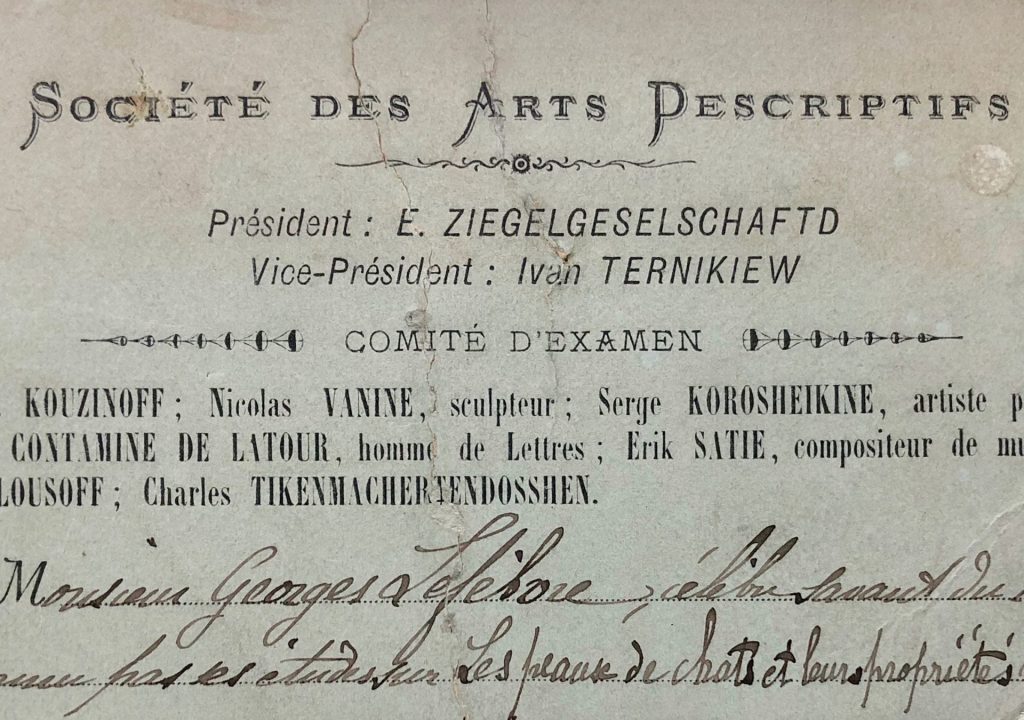 SOCIÉTÉ DES ARTS DESCRIPTIFS
Président : E. ZIEGELGESELSCHAFTD
Vice-Président : Ivan TERNIKIEW
COMITÉ D'EXAMEN
KOUZINOFF ; Nicolas VANINE, sculpteur ; Serge KOROSHEIKINE, artiste p
CONTAMINE DE LATOUR, homme de Lettres ; Erik SATIE, compositeur de mu
LOUSOFF ; Charles TIKENMACHERTENDOSSHEN.
Monsieur Georges Lefèbvre, célèbre savant du
par ses études sur Les peaux de chats et leurs propriétés